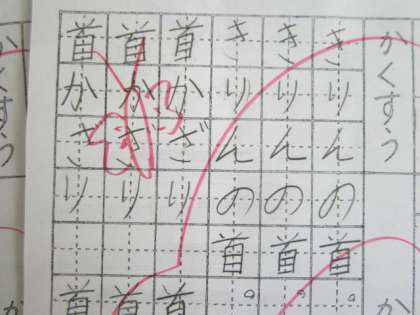 かくすう
か
きりんの首。
きりんの首。
きりんの首。
首かざり
首
首かざり
首
首かざり
首